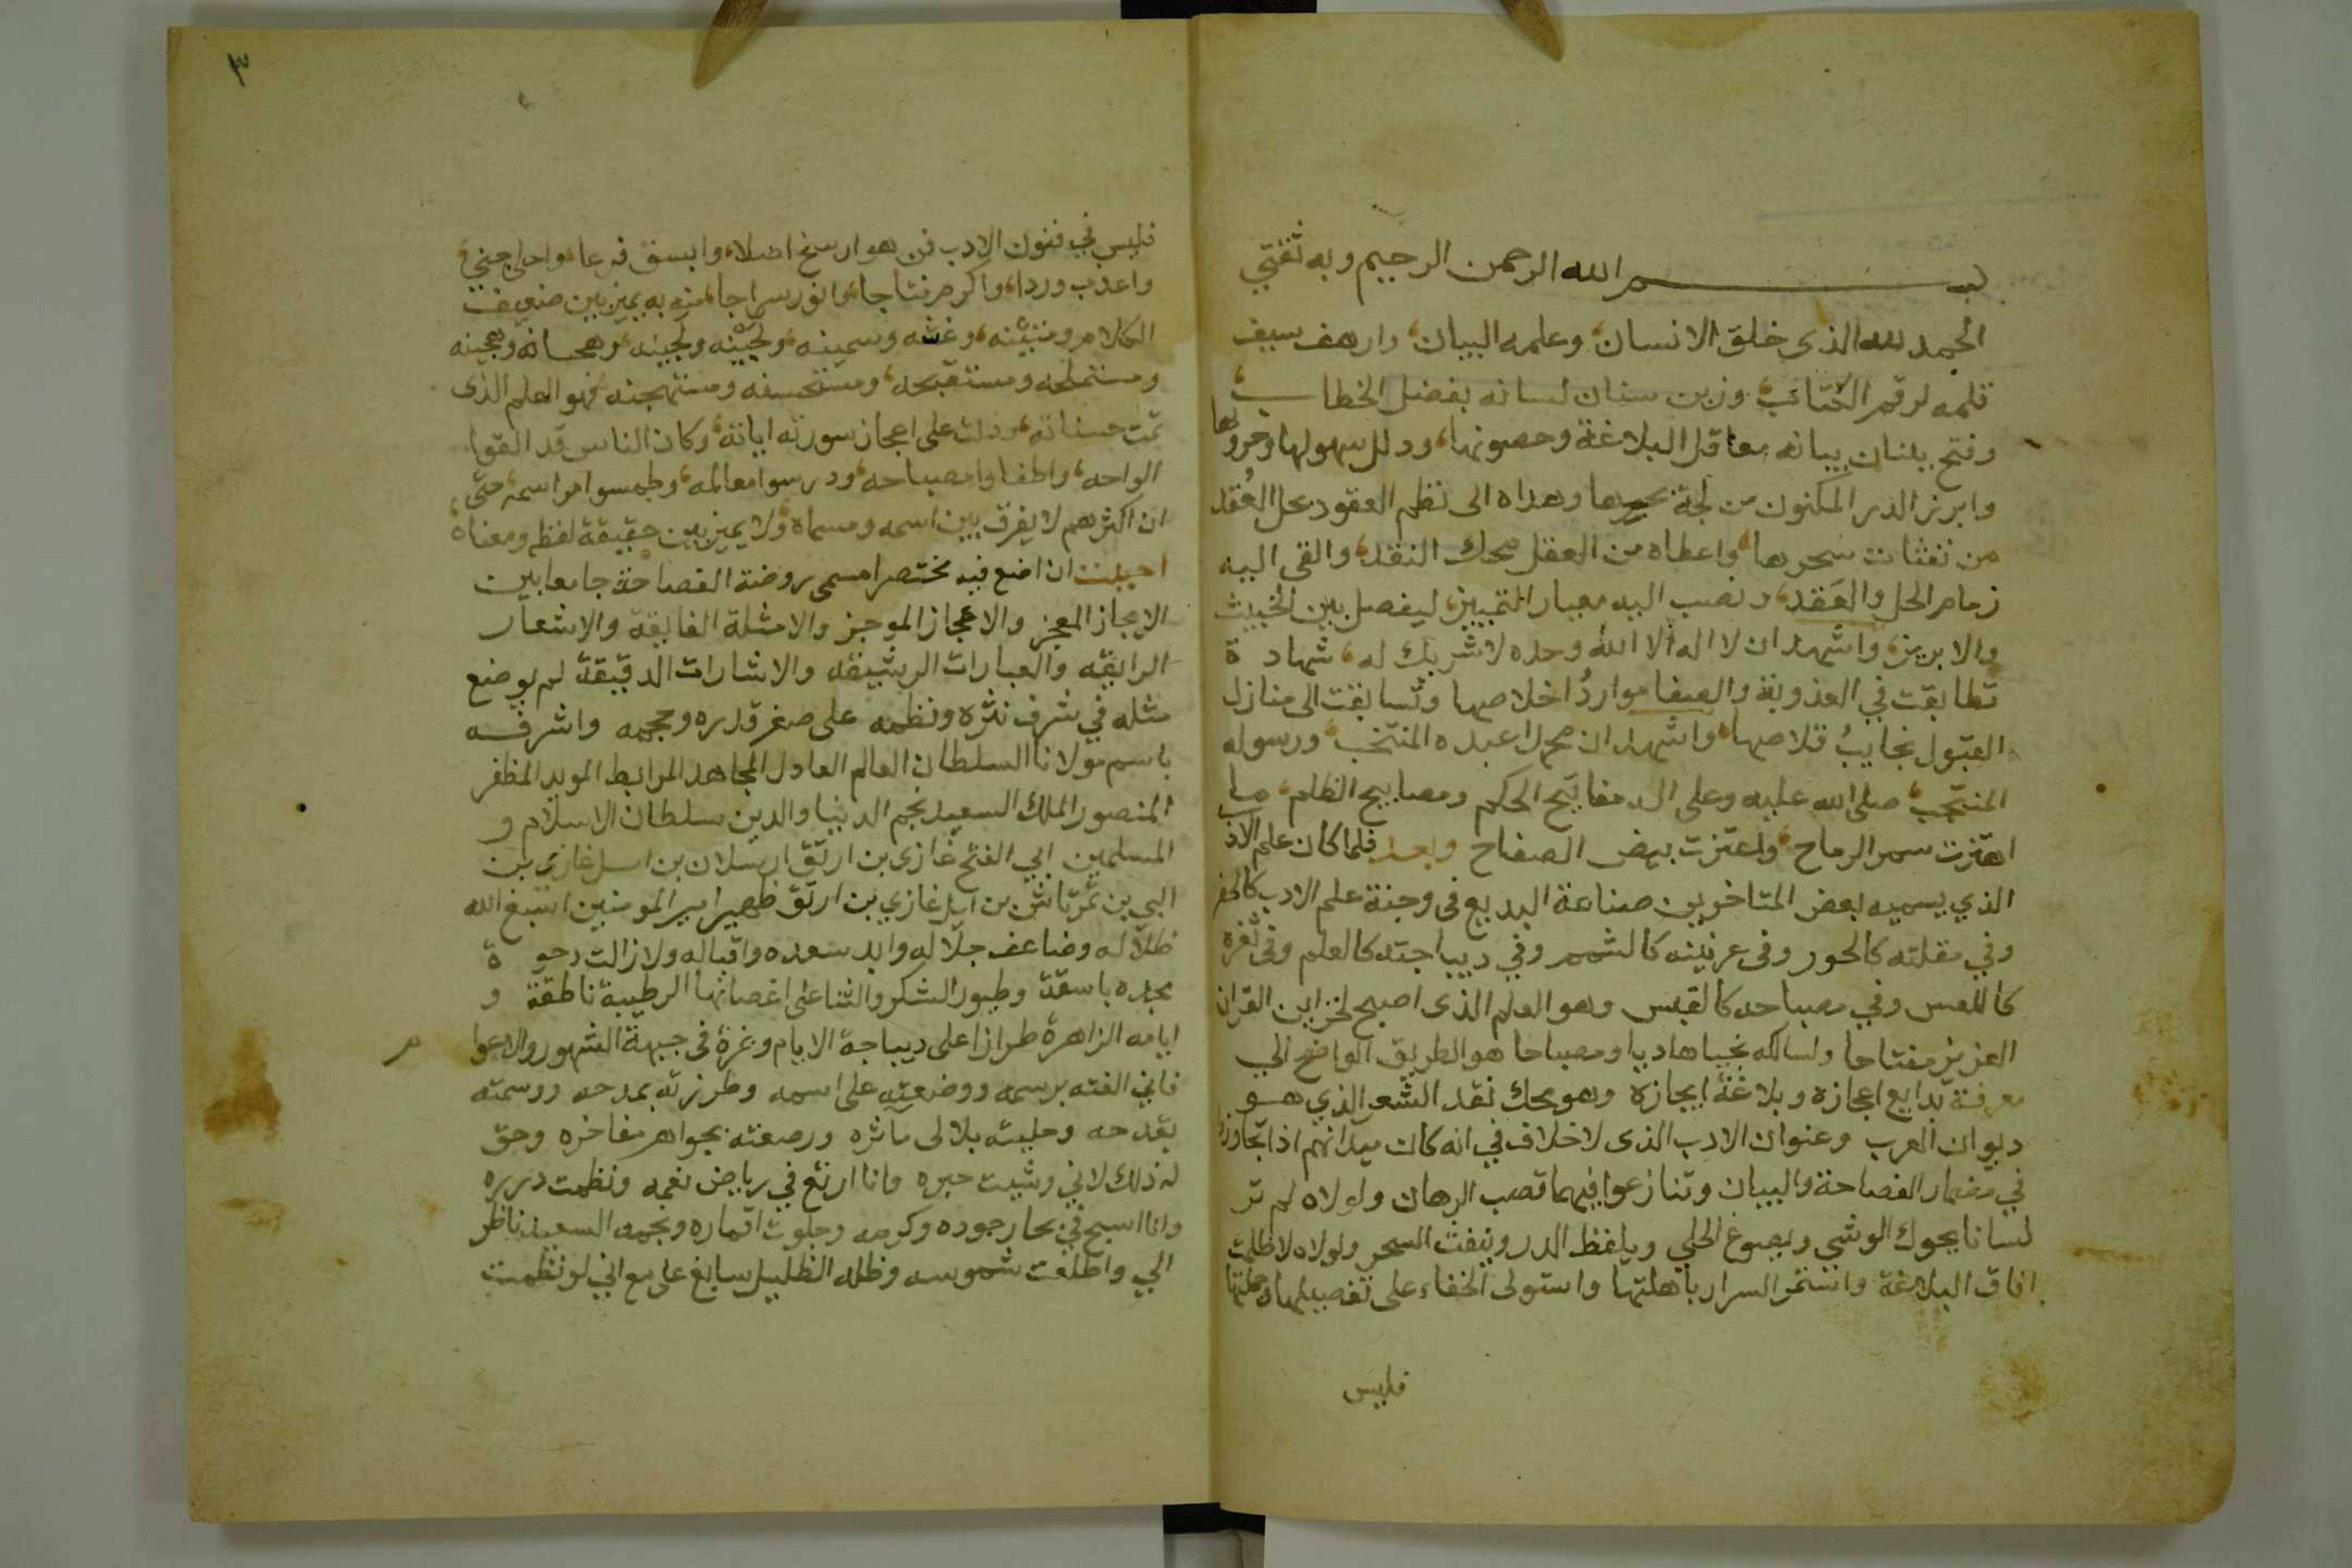 بسم الله الرحمن الرحيم وبه ثقتي
الحمد لله الذي خلق الانسان، وعلمه البيان، وارهف سيف
قلمه لرقم الكتاب، وزين سنان لسانه بفضل الخطاب،
وفتح ببنان بيانه معاقل البلاغة وحصونها، وذلل سهولها وحزونها
وابرز الدر المكنون من لجة بحرها وهداه الى نظم العقود بحل العُقد
من نفثات سحرها، واعطاه من العقل محك النقد، والقى اليه
زمام الحل والعَقد، ونصب اليه معيار التمييز، ليفصل بين الخبيث
والابريز، واشهد ان لا اله الا الله وحده لا شريك له، شهادة
تطابقت في العذوبة والصفا مواردُ اخلاصها وتسابقت الى منازل
القبول نجايبُ قلاصها، واشهد ان محمدا عبده المنتخب، ورسوله
المنتجب، صلى الله عليه وعلى اله مفاتيح الحكم ومصابيح الظلم، ما
اهتزت سمر الرماح، واعتزت بيض الصفاح وبعد فلما كان علم الادب
الذي يسميه بعض المتاخرين صناعة البديع فى وجنة علم الادب كالخفر
وفي مقلته كالحور وفى عرنينه كالشمم وفي ديباجته كالعلم وفى ثغره
كاللعس وفي مصباحه كالقبس وهو العلم الذى اصبح لخزاين القران
العزيز مفتاحا ولسالكه نجيا هاديا ومصباحا هو الطريق الواضح الي
معرفة بدايع اعجازه وبلاغة ايجازه وهو محك نقد الشعر الذي هو
ديوان العرب وعنوان الادب الذى لا خلاف في انه كان ميدانهم اذا تجاوزوا
في مضمار الفصاحة والبيان وتنازعوا فيهما قصب الرهان ولولاه لم تر
لسانا يحوك الوشي ويصوغ الحلي ويلفظ الدر وينفث السحر ولولاه لاظلمت
افاق البلاغة واستمر السرار باهلتها واستولى الخفاء على تفصيلها وجملتها
فليس
٣
فليس في فنون الادب فن هو ارسخ اصلا، وابسق فرعا، واحلى جني،
واعذب وردا، واكرم نتاجا، وانور سراجا، منه به يميز بين ضعيف
الكلام ومتينه، وغثه وسمينه، ولجينه ولجينه، وهجانه وهجينه
ومستملحه ومستقبحه، ومستحسنه ومستهجنه فهو العلم الذى
تمت حسناته، ودلت على اعجاز سورته اياته، وكان الناس قد القوا
الواحه، واطفاوا مصباحه، ودرسوا معالمه، وطمسوا مراسمه، حتى
ان اكثرهم لا يفرق بين اسمه ومسماه، ولا يميز بين حقيقة لفظه ومعناه،
احببت ان اضع فيه مختصرا مسمى بروضة الفصاحة جامعا بين
الايجاز المعجز والاعجاز الموجز والامثلة الفايقة والاشعار
الرايقه والعبارات الرشيقه والاشارات الدقيقة لم يوضع
مثله في شرف نثره ونظمه على صغر قدره وحجمه واشرفه
باسم مولانا السلطان العالم العادل المجاهد المرابط المويد المظفر
المنصور الملك السعيد نجم الدنيا والدين سلطان الاسلام و
المسلمين ابي الفتح غازى بن ارتق ارسلان بن ايل غازى بن
البي بن تمرتاش بن ايل غازي بن ارتق ظهير امير المومنين اسبغ الله
ظلاله وضاعف جلاله وابد سعده واقباله ولا زالت دوحة
مجده باسقة وطيور الشكر والثنا على اغصانها الرطيبة ناطقة و
ايامه الزاهرة طرازا على ديباجة الايام وغرة فى جبهة الشهور والاعوام
فاني الفته برسمه ووضعته على اسمه وطرزته بمدحه ووسمته
بقدحه وحليته بلالى ماثره ورصعته بجواهر مفاخره وحق
له ذلك لاني وشيت حبره وانا ارتع في رياض نعمه ونظمت درره
وانا اسبح في بحار جوده وكرمه وجلوت اقماره ونجمه السعيد ناظر
الي واطلعت شموسه وظله الظليل سابغ علي مع اني لو نظمت